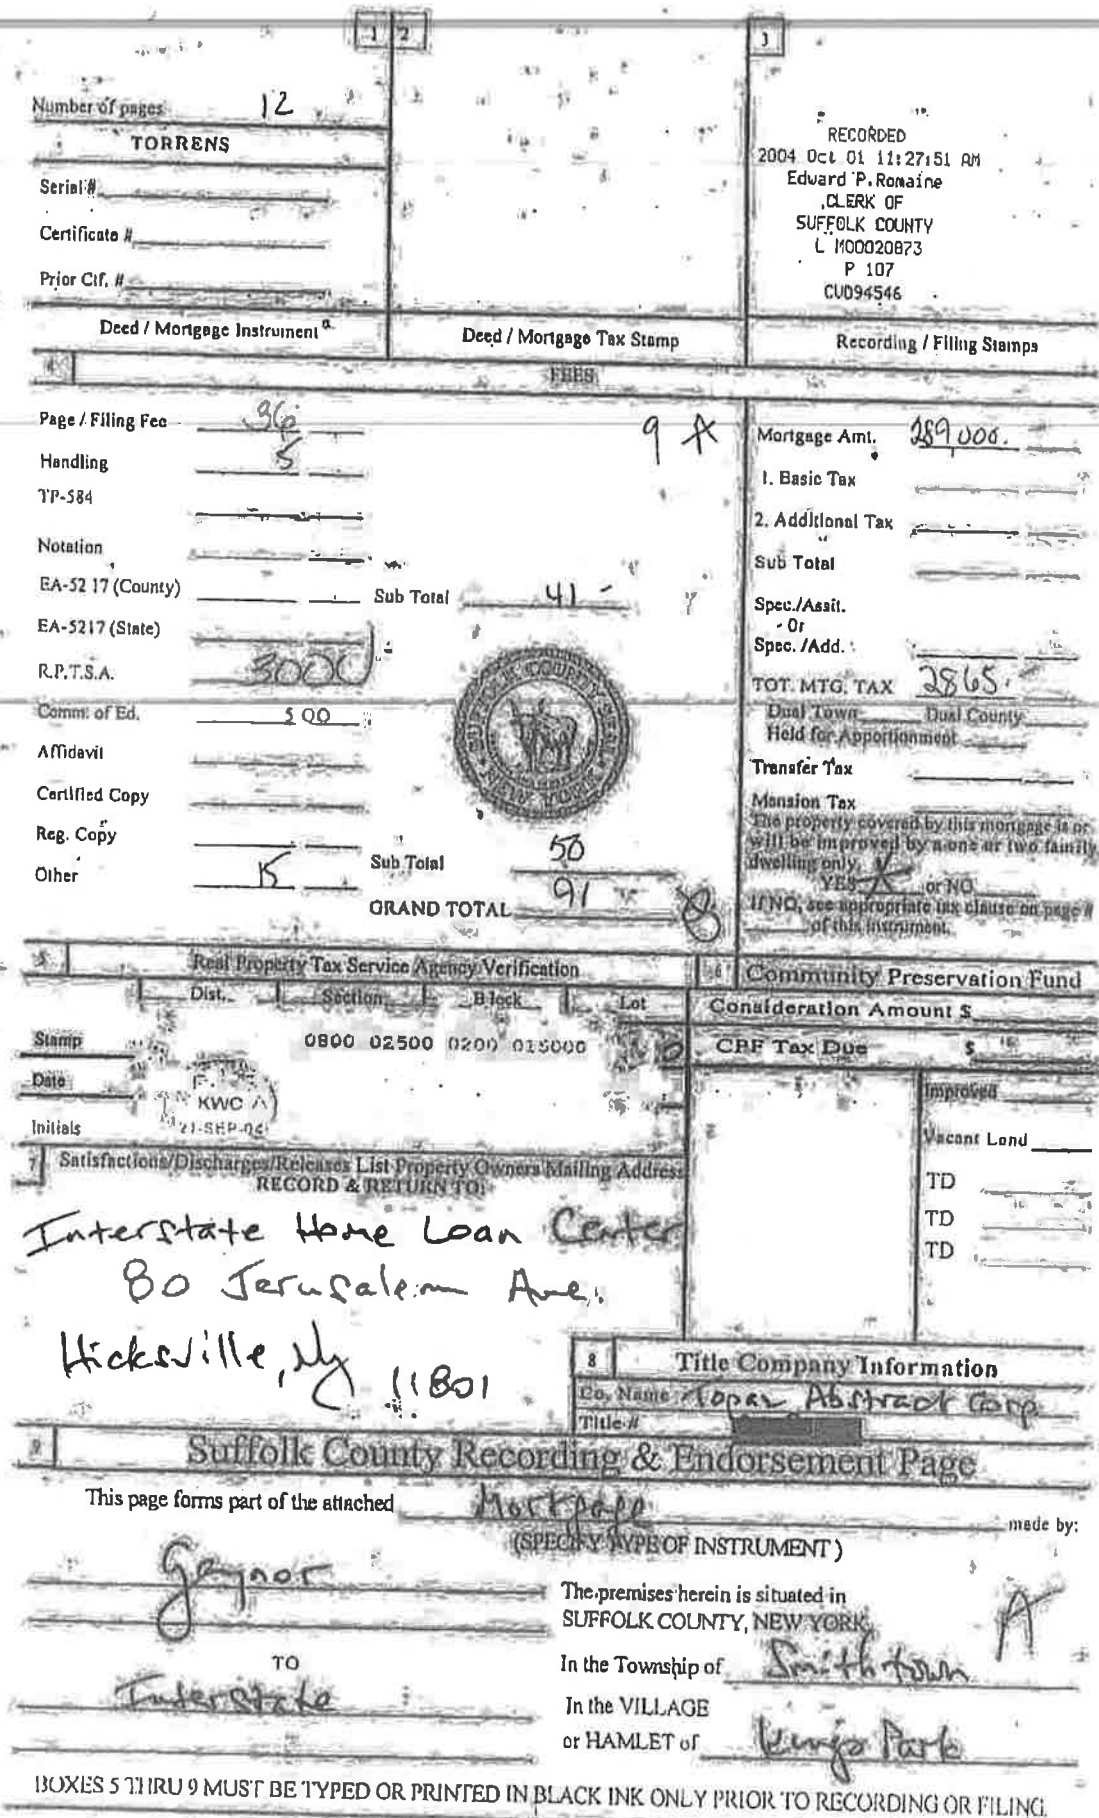 1 2
3
Number of pages 12
TORRENS
Serial #
Certificate #
Prior Ctf. #
RECORDED
2004 Oct 01 11:27:51 AM
Edward P. Romaine
CLERK OF
SUFFOLK COUNTY
L M00020873
P 107
CUD94546
Deed / Mortgage Instrument
Deed / Mortgage Tax Stamp
Recording / Filing Stamps
4
FEES
Page / Filing Fee 36
Handling 5
TP-584
Notation
EA-52 17 (County)
Sub Total 41 -
EA-5217 (State)
R.P.T.S.A.
Comm. of Ed. 5 00
Affidavit
Certified Copy
Reg. Copy
Other 15
Sub Total 50
GRAND TOTAL 91
9 A
Mortgage Amt. 289,000.
1. Basic Tax
2. Additional Tax
Sub Total
Spec./Assit.
Or
Spec. /Add.
TOT. MTG. TAX 2865.
Dual Town Dual County
Held for Apportionment
Transfer Tax
Mansion Tax
The property covered by this mortgage is or
will be improved by a one or two family
dwelling only.
YES X or NO
If NO, see appropriate tax clause on page #
of this instrument.
5
Real Property Tax Service Agency Verification
6 Community Preservation Fund
Dist. Section Block Lot
Consideration Amount $
Stamp
0800 02500 0200 015000
CPF Tax Due $
Date
KWC A
21-SEP-04
Initials
Improved
Vacant Land
TD
TD
TD
7 Satisfactions/Discharges/Releases List Property Owners Mailing Address
RECORD & RETURN TO:
Interstate Home Loan Center
80 Jerusalem Ave.
Hicksville, Ny 11801
8 Title Company Information
Co. Name Topaz Abstract Corp
Title #
9 Suffolk County Recording & Endorsement Page
This page forms part of the attached Mortgage made by:
(SPECIFY TYPE OF INSTRUMENT )
Gaynor
The premises herein is situated in
SUFFOLK COUNTY, NEW YORK.
A
TO
In the Township of Smithtown
Interstate
In the VILLAGE
or HAMLET of Kings Park
BOXES 5 THRU 9 MUST BE TYPED OR PRINTED IN BLACK INK ONLY PRIOR TO RECORDING OR FILING.